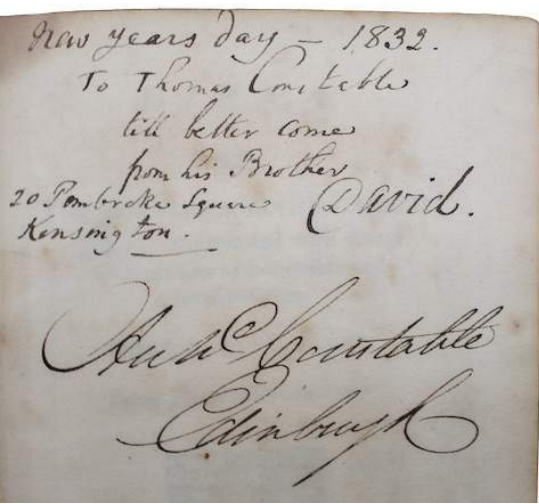 New years day – 1832.
To Thomas Constable
till better come
from his Brother
20 Pembroke Square David.
Kensington.
Constable
Edinburgh